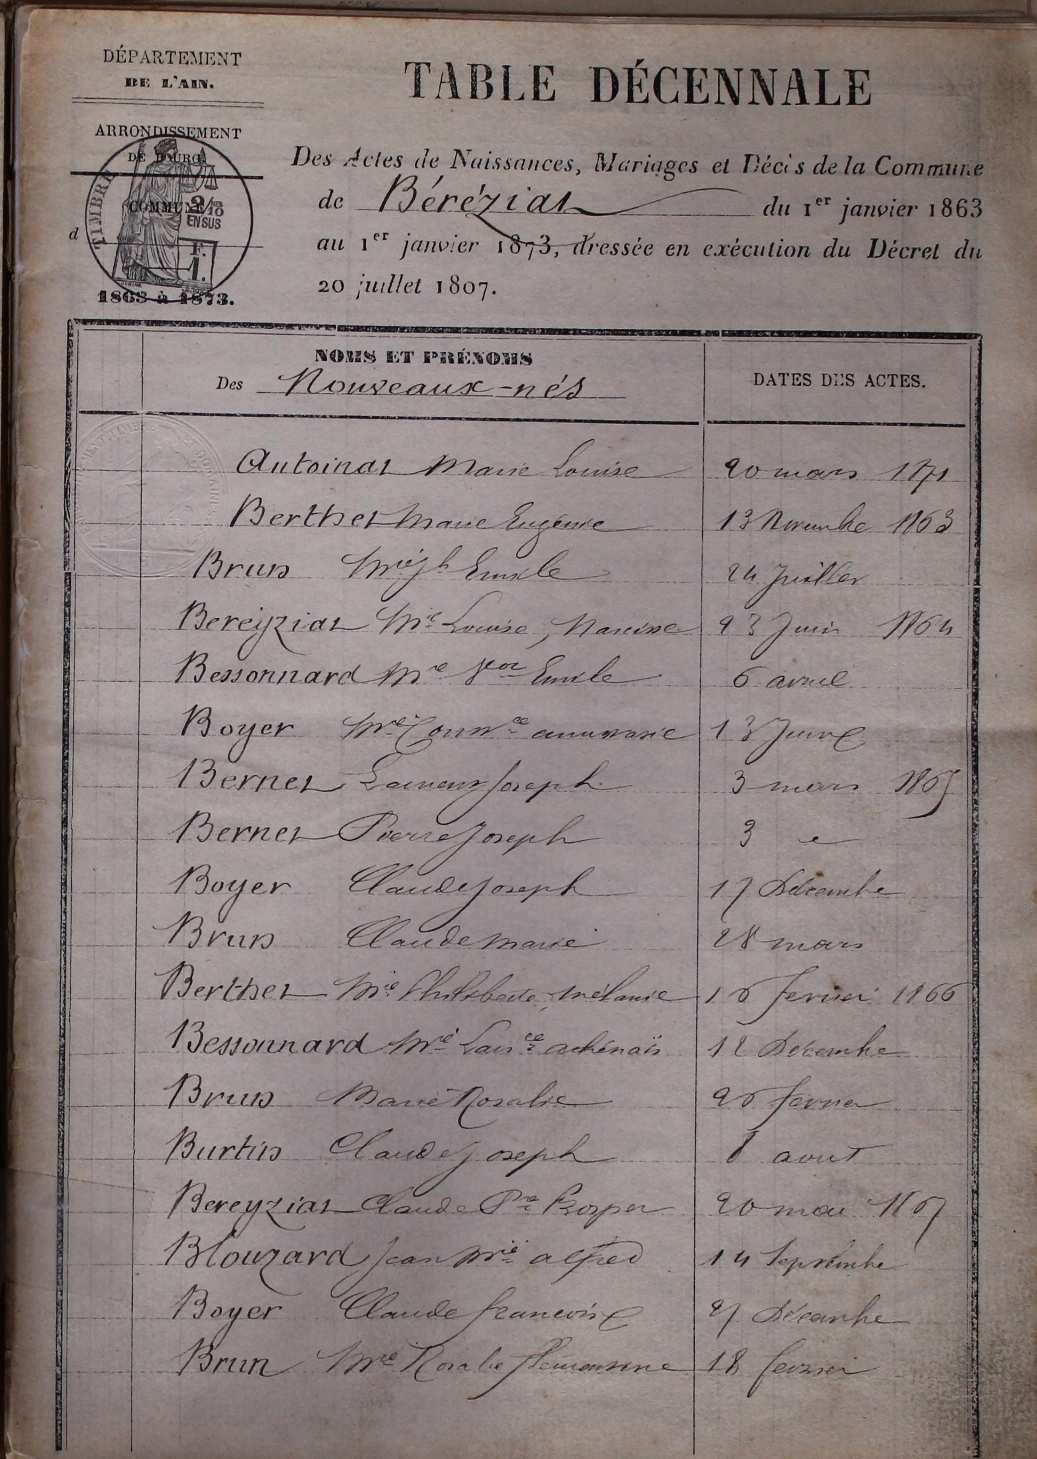 DÉPARTEMENT
DE L'AIN.
ARRONDISSEMENT
DE BOURG
COMMUNE
d
TIMBRE
2/10
EN SUS
F.
1.
1863 à 1873.
TABLE DÉCENNALE
Des Actes de Naissances, Mariages et Décès de la Commune
de Béréziat du 1er janvier 1863
au 1er janvier 1873, dressée en exécution du Décret du
20 juillet 1807.
NOMS ET PRÉNOMS
Des Nouveaux-nés
DATES DES ACTES.
Antoinat Marie Louise 20 mars 1871
Berthet Marie Eugénie 13 Novembre 1863
Brun Mie Jh Emile 24 Juillet
Bereyziat Mie Louise, Narcisse 23 Juin 1864
Bessonnard Mie Emile 6 avril
Boyer Mie annmarie 13 Juin
Bernet Joseph 3 mars 1865
Bernet Pierre Joseph 3
Boyer Claude Joseph 17 Décembre
Brun Claude marie 28 mars
Berthet Mie Philiberte, mélanie 16 fevrier 1866
Bessonnard Mie athénaïs 12 Décembre
Brun Marie Rosalie 26 fevrier
Burtin Claude Joseph 8 aout
Bereyziat Claude Pre Prosper 20 mai 1867
Blouzard Jean Mie alfred 14 Septembre
Boyer Claude francois 27 Décembre
Brun Mie Rosalie 18 fevrier